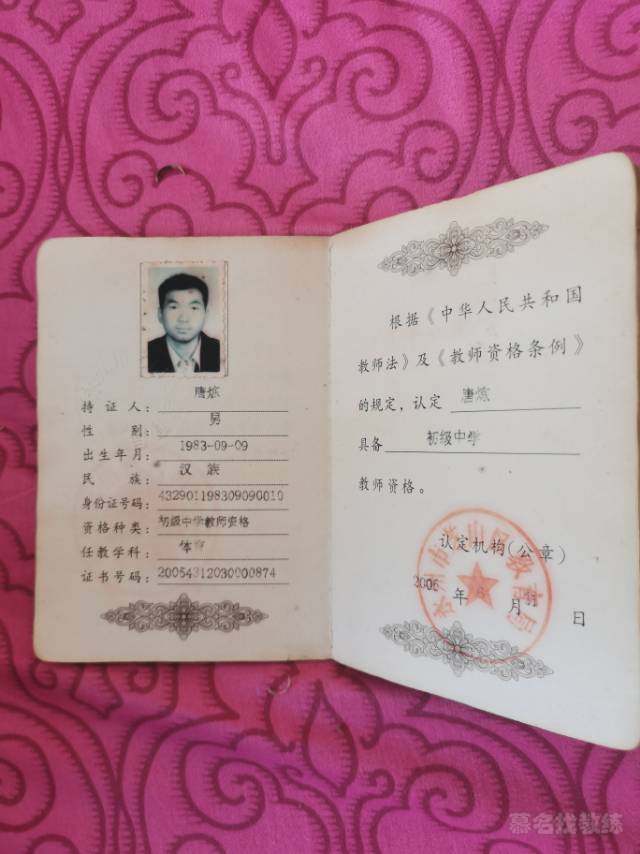 持证人：唐炼
性别：男
出生年月：1983-09-09
民族：汉族
身份证号码：432901198309090010
资格种类：初级中学教师资格
任教学科：体育
证书号码：20054312030000874
根据《中华人民共和国
教师法》及《教师资格条例》
的规定，认定 唐炼
具备 初级中学
教师资格。
认定机构（公章）
年 月 日
慕名找教练